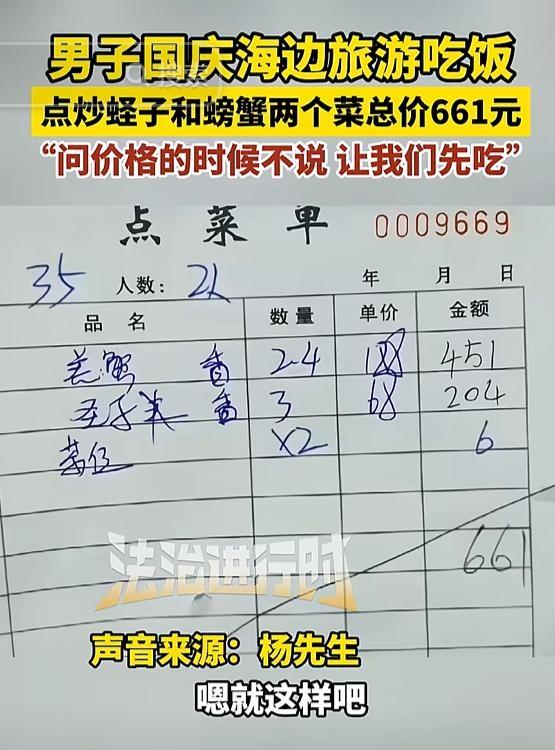 搜索
男子国庆海边旅游吃饭
点炒蛏子和螃蟹两个菜总价661元
“问价格的时候不说 让我们先吃”
点菜单 0009669
35 人数: 2人 年 月 日
品名 数量 单价 金额
羔蟹 2.4 188 451
3 68 204
茶位 X2 6
661
法治进行时
声音来源：杨先生
嗯就这样吧